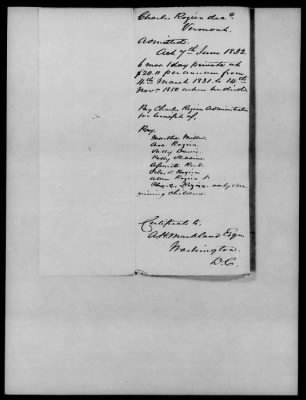 Charles Rogien decd.
Vermont.
Admitted.
Act 7th June 1832.
6 mos. 1 day private at
$20.11 per annum from
4th March 1831. to 14th
Novr 1850 when he died.
Pay Charles Rogien Administrator
for benefit of,
Pay.
Martha Miller.
Ann Rogien
Sally Davis.
Polly
Asenath
Rogien
Rogien Jr
Charles Rogien only
children.
Certificate to.
A.H. Markland Esqr.
Washington.
D.C.